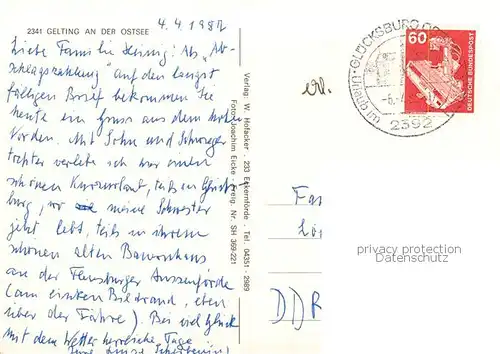 4.4.1987
2341 GELTING AN DER OSTSEE
Liebe Familie Hennig! Als "Ab-
schlagszahlung" auf den längst
fälligen Brief bekommen Sie
heute ein Gruss aus dem hohen
Norden. Mit Sohn und Schwieger-
tochter verlebte ich hier einen
schönen Kurzurlaub, teils in Glücks-
burg, wo meine Schwester
jetzt lebt, teils in ihrem
schönen alten Bauernhaus
an der Flensburger Aussenförde
(am linken Bildrand, eben
über der Fähre). Bei viel Glück
mit dem Wetter herrliche Tage
Ihre
Verlag W. Hofacker . 233 Eckernförde . Tel. 04351 - 2989
Foto: Joachim Eicke - Freig. Nr. SH 369-221
erl.
GLÜCKSBURG, OS
im Urlaub
2392
60
DEUTSCHE BUNDESPOST
Fam
DDR
privacy protection
Datenschutz